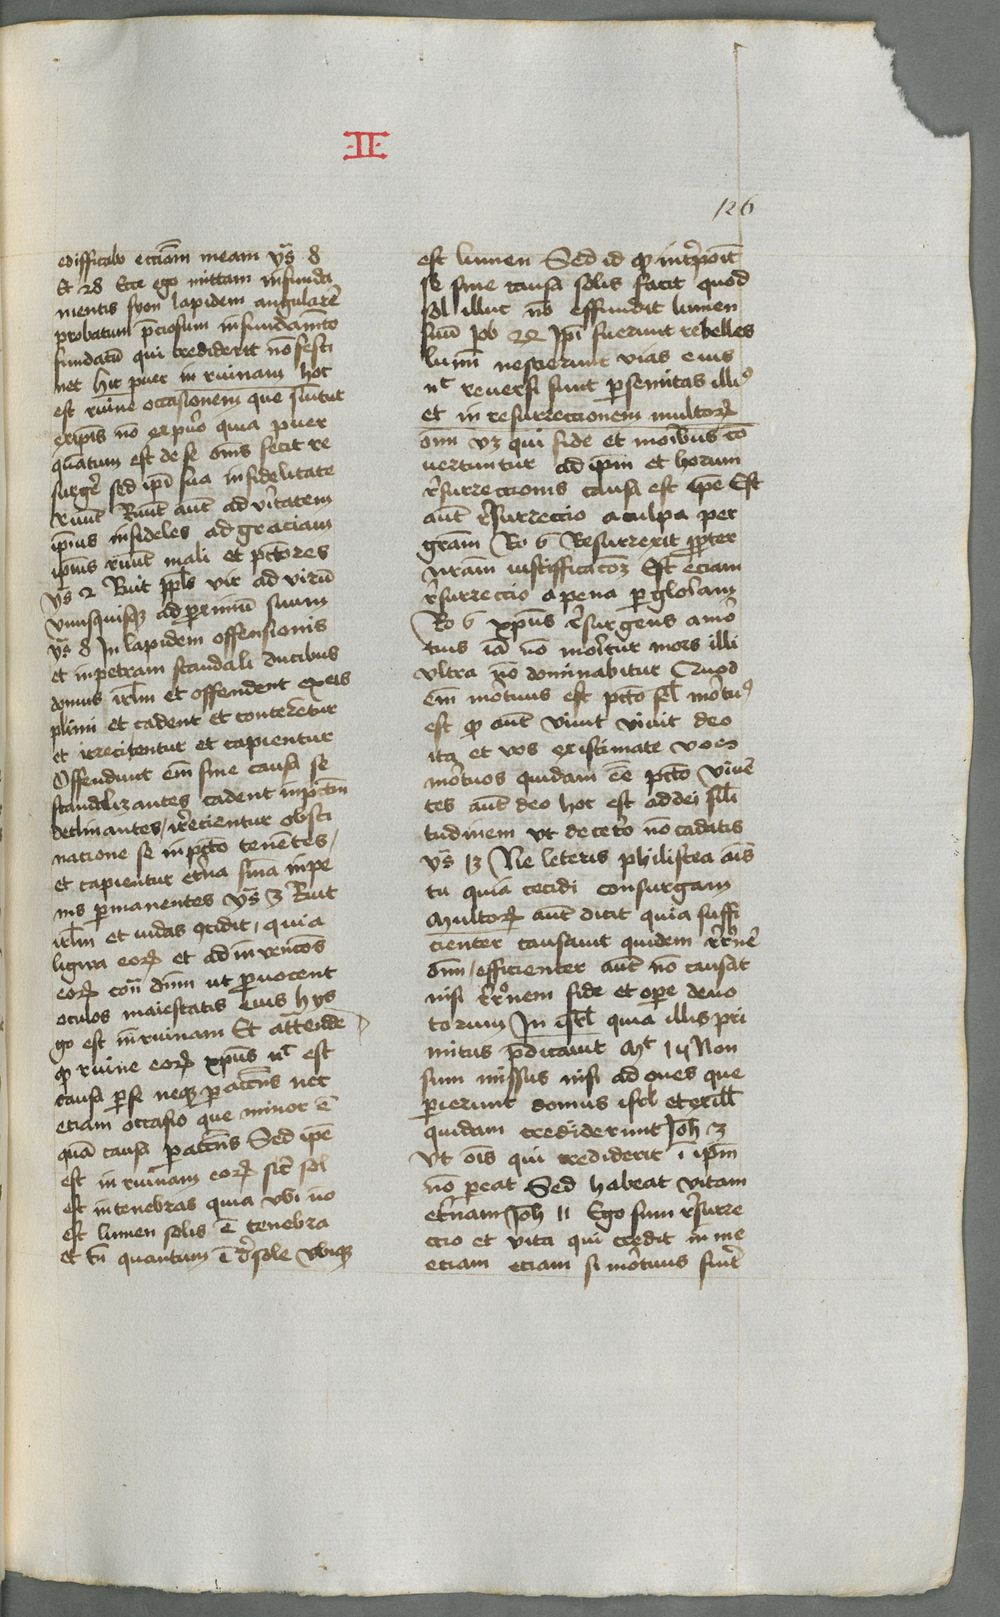 ·II·
126
edifficabo ecciam meam ys̄ 8
Et 28 Ecce ego mittam infunda
mentis syon lapidem angularē
probatum p̄ciosum infundamēto
fundatū qui crediderit nō festi
net hic puer in ruinam hoc
est ruine occasionem que sumitur
eripīs nō ex puero quia puer
quātum est de se om̄s fecit re
surgē sed ip̄i sua infidelitate
ruūt Ruūt aūt ad v̄itatem
ip̄ius infideles ad graciam
ip̄ius ruūt mali et pctōres
ys̄ 2 Ruit ppl̄s vir ad virū
vnusquisq; ad p̄ximū suum
ys̄ 8 In lapidem offensionis
et in petram scandali ducibus
domus isrl̄m et offendent ex eis
plimi et cadent et conterētur
et irrecitentur et capientur
Offendunt em̄ sine causa se
scandalizantes cadent in pctm̄
declinantes / irrecientur obsti
natione se in pctō tenētes /
et capientur et̄na sn̄ia in pe
nis p̄manentes ys̄ 3 Ruit
irl̄m et iudas ꝯcidit / quia
ligwa eorꝝ et ad invencōes
eorꝝ con̄ dnm̄ ut p̄uocent
oculos maiestatis eius hys
go est in ruinam Et attende
ꝙ ruine eorꝝ xp̄us nc̄ est
causa p̄ se neq; p̄ accn̄s nec
etiam occasio que minor ē
quā causa p̄ accn̄s Sed ip̄e
est in ruinam eorꝝ sic̄ sol
est in tenebras quia vbi nō
est lumen solis ē tenebra
et tn̄ quantum ē d̄ sole vbiq;
est lumen Sed id ꝙ int̄poīt
se sine causa solis facit quod
sol illuc nō effundit lumen
suū Job 24 Ip̄i fuerunt rebelles
lumīi nescierunt vias eius
nc̄ reuersi sunt p̄ semitas illiꝰ
et in resurreccionem multorꝝ
om̄ vz qui fide et moribus cō
uertuntur ad ip̄m et horum
r̄surreccionis causa est ip̄e Est
aūt r̄surreccio a culpa per
grām Ro 6 Resurrexit p̄pter
nr̄am iustifficacōꝫ Est eciam
r̄surreccio a pena p̄ glor̄iam
Ro 6 xp̄us r̄surgens a mor̄
tuis iā nō mor̄itur mors illi
vltra nō dominabitur Quod
em̄ mor̄tuus est pctō sēl mor̄tuꝰ
est ꝙ aūt viuit viuit deo
ita et vos existimate vos
mor̄tuos quidam ēe pctō viuē
tes aūt deo hoc est ad dei sil̄i
tudinem vt de ceterō nō cadatis
ys̄ 13 Ne leteris philistea om̄is
tu quia cecidi consurgam
Multorꝝ aūt dicit quia suffi
cienter causauit quidem r̄r̄nē
om̄ / efficienter aūt nō causat
nisi r̄r̄nem fide et ope deuo
torum In isrl̄ quia illis pri
mitus p̄dicauit Mt̄ 15 Non
sum missus nisi ad oues que
p̄ierunt domus isrl̄ et ex ill̄
quidam crediderunt Joh 3
Vt om̄is qui crediderit ī ip̄m
nō peeat Sed habeat vitam
et̄nam Joh 11 Ego sum r̄surre
ccio et vita qui credit in me
eciam eciam si mor̄tuus fuīt